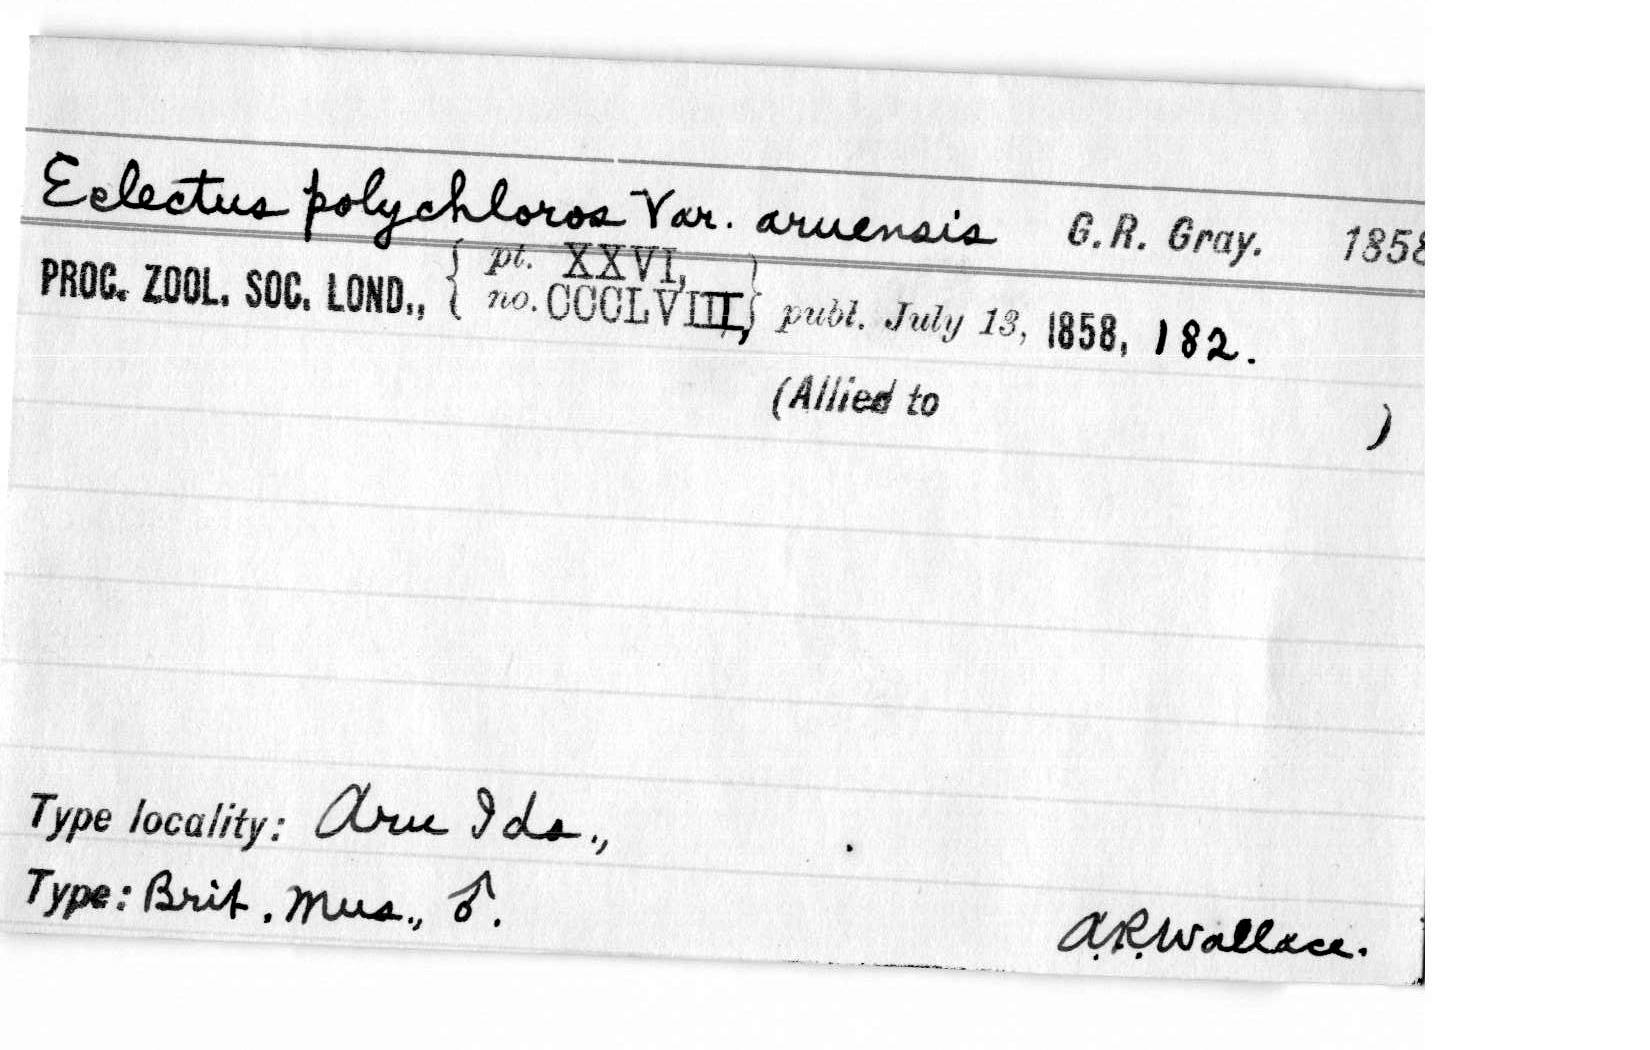 Eclectus polychloros Var. aruensis G.R. Gray. 1858
PROC. ZOOL. SOC. LOND., { pt. XXVI, }
{ no. CCCLVIII, } publ. July 13, 1858, 182.
(Allied to )
Type locality: Aru Ids., .
Type: Brit. Mus., ♂.
A.R. Wallace.